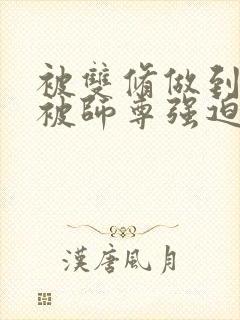 被雙脩做到
被師尊强迫
漢唐風月